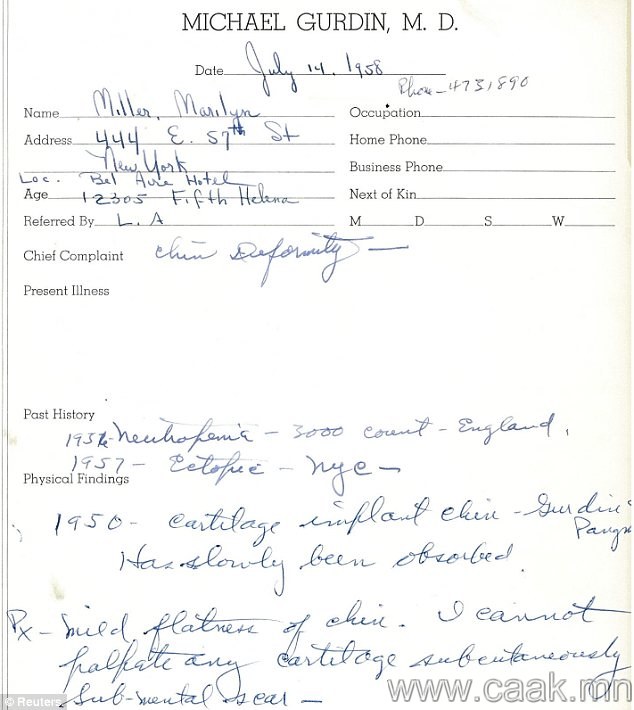 MICHAEL GURDIN, M. D.
Date July 14, 1958
Phone - 4731890
Name Miller, Marilyn Occupation
Address 444 E. 57th St Home Phone
New York Business Phone
Loc. Bel Aire Hotel
Age 12305 Fifth Helena Next of Kin
Referred By L. A M D S W
Chief Complaint Chin Deformity —
Present Illness
Past History
1956 - Neutropenia - 3000 count - England,
1957 - Ectopic - NYC -
Physical Findings
1950 - cartilage implant chin - Gurdin
Has slowly been absorbed.
Px - mild flatness of chin. I cannot
palpate any cartilage subcutaneously
Sub-mental scar -
© Reuters
www.caak.mn